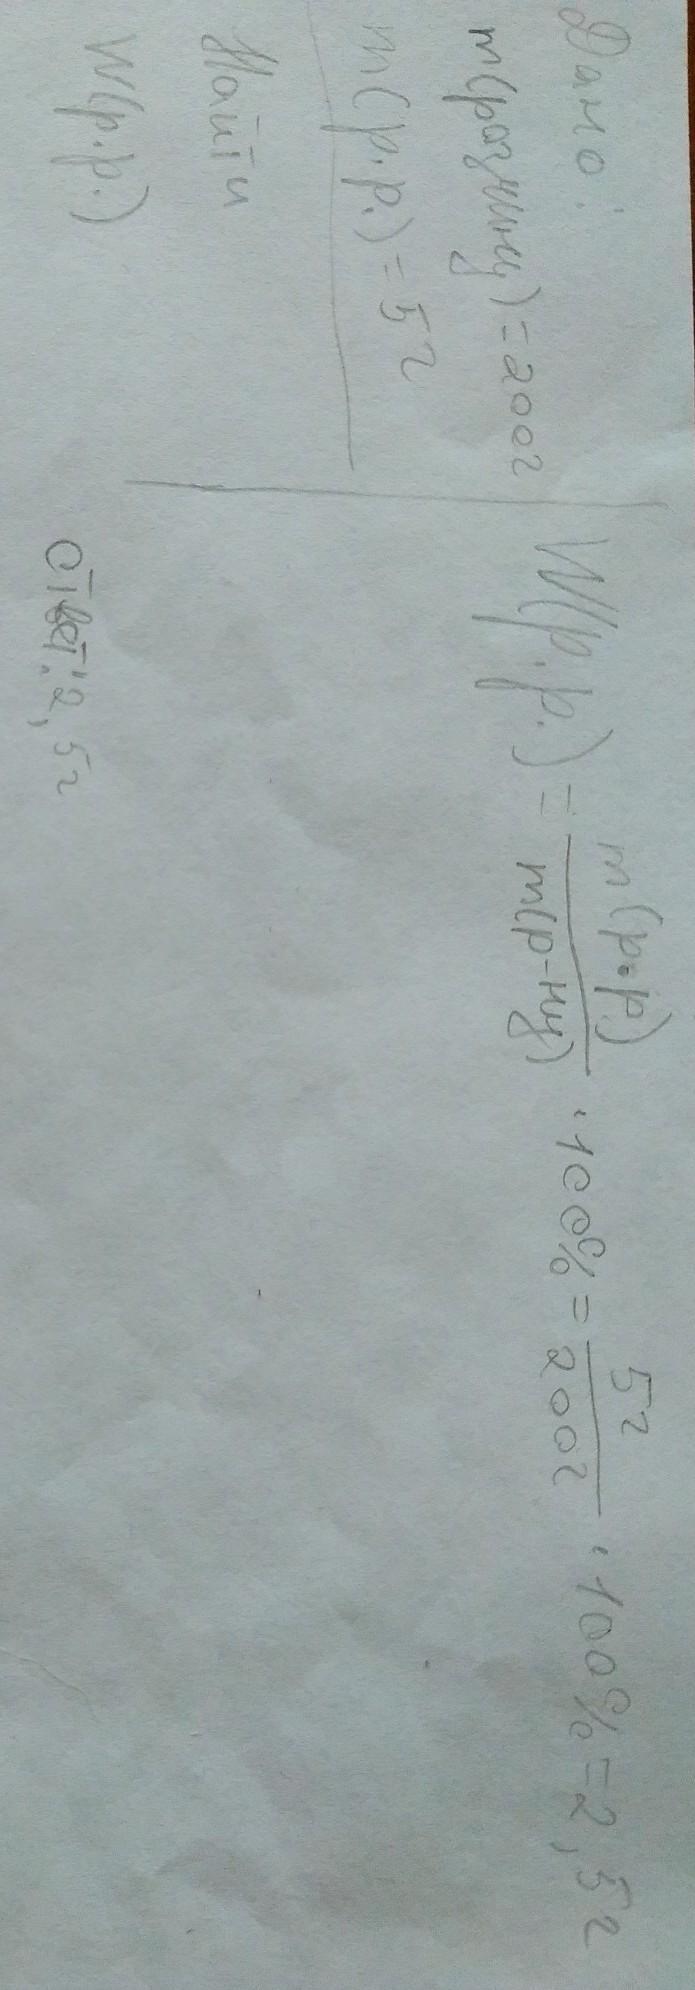 Дано:
m(розчину)=200г
m(р.р.)=5г
Найти
W(р.р.)
W(р.р.) = m(р.р.) / m(р-ну) · 100% = 5г / 200г · 100% = 2,5г
Ответ: 2,5г